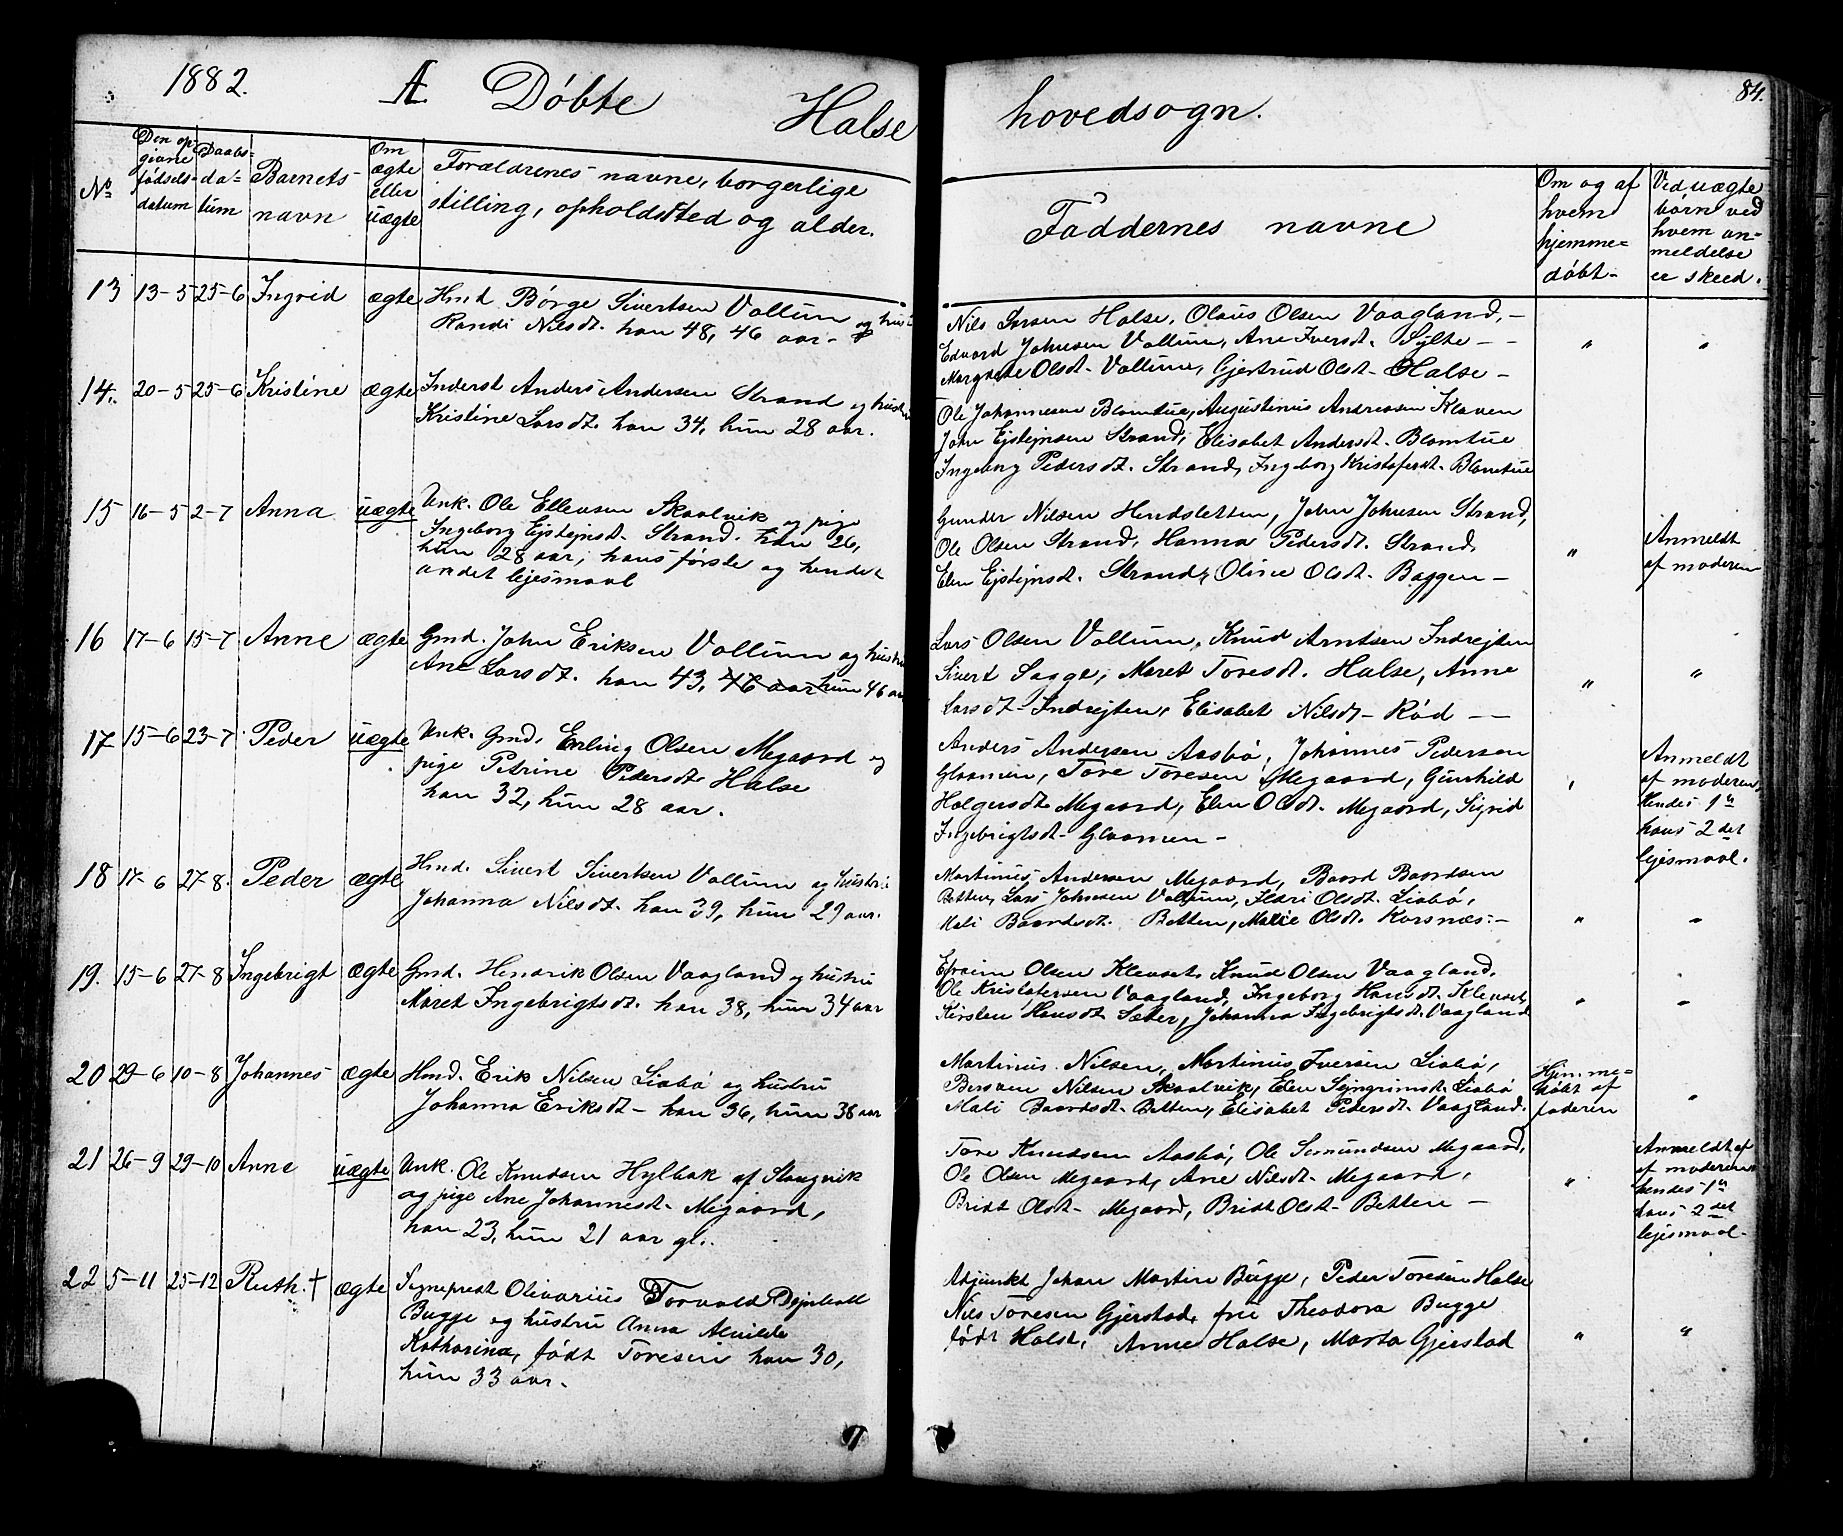 1882. Æ Døbte Halse hovedsogn. 84.
No
Den op-
givne
fødsels-
datum
Daabs-
da-
tum
Barnets-
navn
Om
ægte
eller
uægte
Forældrenes navne, borgerlige
stilling, opholdsted og alder.
Faddernes navne
Om og af
hvem
hjemme-
døbt-
Ved uægte
børn ved
hvem an-
meldelse
er skeed.
13 13-5 25-6 Ingrid ægte Hmd Børge Sivertsen Vollum og hustr
Randi Nilsdt. han 48, 46 aar.
Nils Larsen Halse, Olaus Olsen Vaagland,-
Edvard Johnsen Vollum, Ane Iversdt. Sylte--
Margrete Olsdt-Vollum, Gjertrud Olsdt-Halse-
" "
14. 20-5 25-6 Kristine ægte Inderst Anders Andersen Strand og hustru
Kristine Larsdt. han 34, hun 28 aar.
Ole Johannesen Blomtue, Augustinus Andreasen Kloven
John Ejstejnsen Strand, Elisabet Andersdt-Blomtue
Ingeborg Pedersdt. Strand, Ingeborg Kristofersdt-Blomtue
15 16-5 2-7 Anna uægte Unk. Ole Ellevsen Skaalvik og pige
Ingeborg Ejstejnsdt. Strand. han 26,
hun 28 aar; hans første og hendes
andet lejesmaal
Gunder Nilsen Hendsletten, John Johnsen Strand,
Ole Olsen Strand, Hanna Pedersdt. Strand,
Elen Ejstejnsdt. Strand, Oline Olsdt. Baggen-
"
Anmeldt
af moderen
16 17-6 15-7 Anne ægte Gmd. John Eriksen Vollum og hustru
Ane Larsdt. han 43, 46 aar hun 46 aar
Lars Olsen Vollum, Knud Arntsen Indrejten
Sivert Sagge, Maret Toresdt. Halse, Anne
Larsdt-Indrejten, Elisabet Nilsdt-Rød--
" "
17 15-6 23-7 Peder uægte Unk. Gmd. Erling Olsen Megaard og
pige Petrine Pedersdt. Halse
han 32, hun 28 aar.
Anders Andersen Aasbø, Johannes Pedersen
Glaamen, Tore Toresen Megaard, Gunhild
Holgersdt. Megaard, Elen Olsdt. Megaard, Sigrid
Ingebrigtsdt-Glaamen-
"
Anmeldt
af moderen,
hendes 1ste
hans 2det
lejesmaal.
18 17-6 27-8. Peder ægte Hmd. Sivert Sivertsen Vollum og hustru
Johanna Nilsdt. han 39, hun 29 aar.
Martinus Andersen Megaard, Baard Baardsen
Betten, Lars Johnsen Vollum, Ildri Olsdt. Liabø,
Mali Baardsdt. Betten, Marie Olsdt. Korsnæs.-
" "
19. 15-6 27-8 Ingebrigt ægte Gmd. Hendrik Olsen Vaagland og hustru
Maret Ingebrigtsdt. han 38, hun 34 aar
Efraim Olsen Klevset, Knud Olsen Vaagland,
Ole Kristofersen Vaagland, Ingeborg Hansdt. Klevset,
Kirsten Hansdt. Sæter, Johanna Ingebrigtsdt. Vaagland
" "
20 29-6 10-8 Johannes ægte Hmd. Erik Nilsen Liabø og hustru
Johanna Eriksdt- han 36, hun 38 aar
Martinus Nilsen, Martinus Iversen Liabø,
Bersven Nilsen Skaalvik, Elen Sejngrimsdt. Liabø
Mali Baardsdt. Betten, Elisabet Pedersdt. Vaagland.
Hjemme-
døbt af
faderen
"
21 26-9 29-10 Anne uægte Unk. Ole Knudsen Hylbak af Stangvik
og pige Ane Johannesdt. Megaard,
han 23, hun 21 aar gl..
Tore Knudsen Aasbø, Ole Semundsen Megaard,
Ole Olsen Megaard, Ane Nilsdt-Megaard,
Bridt Olsdt- Megaard, Bridt Olsdt-Betten-
"
Anmeldt af
af moderen
hendes 1ste
hans 2det
lejesmaal-
22 5-11 25-12 Ruth. † ægte Sogneprest Olivarius Torvald
Bugge og hustru Anna Alvilde
Katharina, født Toresen han 30,
hun 33 aar.
Adjunkt Johan Martin Bugge, Peder Toresen Halse
Nils Toresen Gjerstad, frue Theodora Bugge
født Holst, Anne Halse, Marta Gjerstad
" "